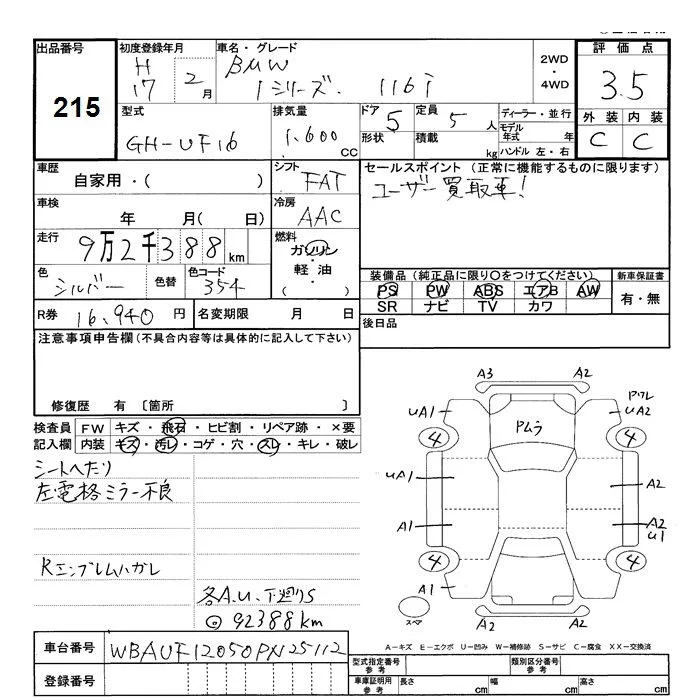 出品番号 初度登録年月 車名・グレード 2WD・4WD 評価点
215 H17 2月 BMW 1シリーズ. 116i 3.5
型式 排気量 ドア 5 定員 5人 ディーラー・並行 外装 内装
GH-UF16 1,600 CC 形状 積載 kg モデル年式 年 ハンドル 左・右 C C
車歴 シフト セールスポイント (正常に機能するものに限ります)
自家用・( ) FAT ユーザー買取車!
車検 年 月(日) 冷房 AAC
走行 9万2千388km 燃料 ガソリン・軽油・( )
色 シルバー 色替 色コード 354
装備品 (純正品に限り○をつけてください) 新車保証書
PS PW ABS エアB AW 有・無
SR ナビ TV カワ
R券 16,940円 名変期限 月 日 後日品
注意事項申告欄(不具合内容等は具体的に記入して下さい)
修復歴 有 〔箇所 〕
検査員 FW キズ・飛石・ヒビ割・リペア跡・×要
記入欄 内装 キズ・汚レ・コゲ・穴・スレ・キレ・破レ
シートへたり
左電格ミラー不良
Rエンブレムハガレ
各A.U、下廻りS
◎92388km
A3 A2
UA1 PMラ UA2
4 4
UA1 A2
A1 A2
U1
4 4
A1
A2 A2
A-キズ E-エクボ U-凹み W-補修跡 S-サビ C-腐食 XX-交換済
車台番号 WBAUF12050PN25112
登録番号
型式指定番号 参考 類別区分番号 参考
車庫証明用 参考 長さ cm 幅 cm 高さ cm